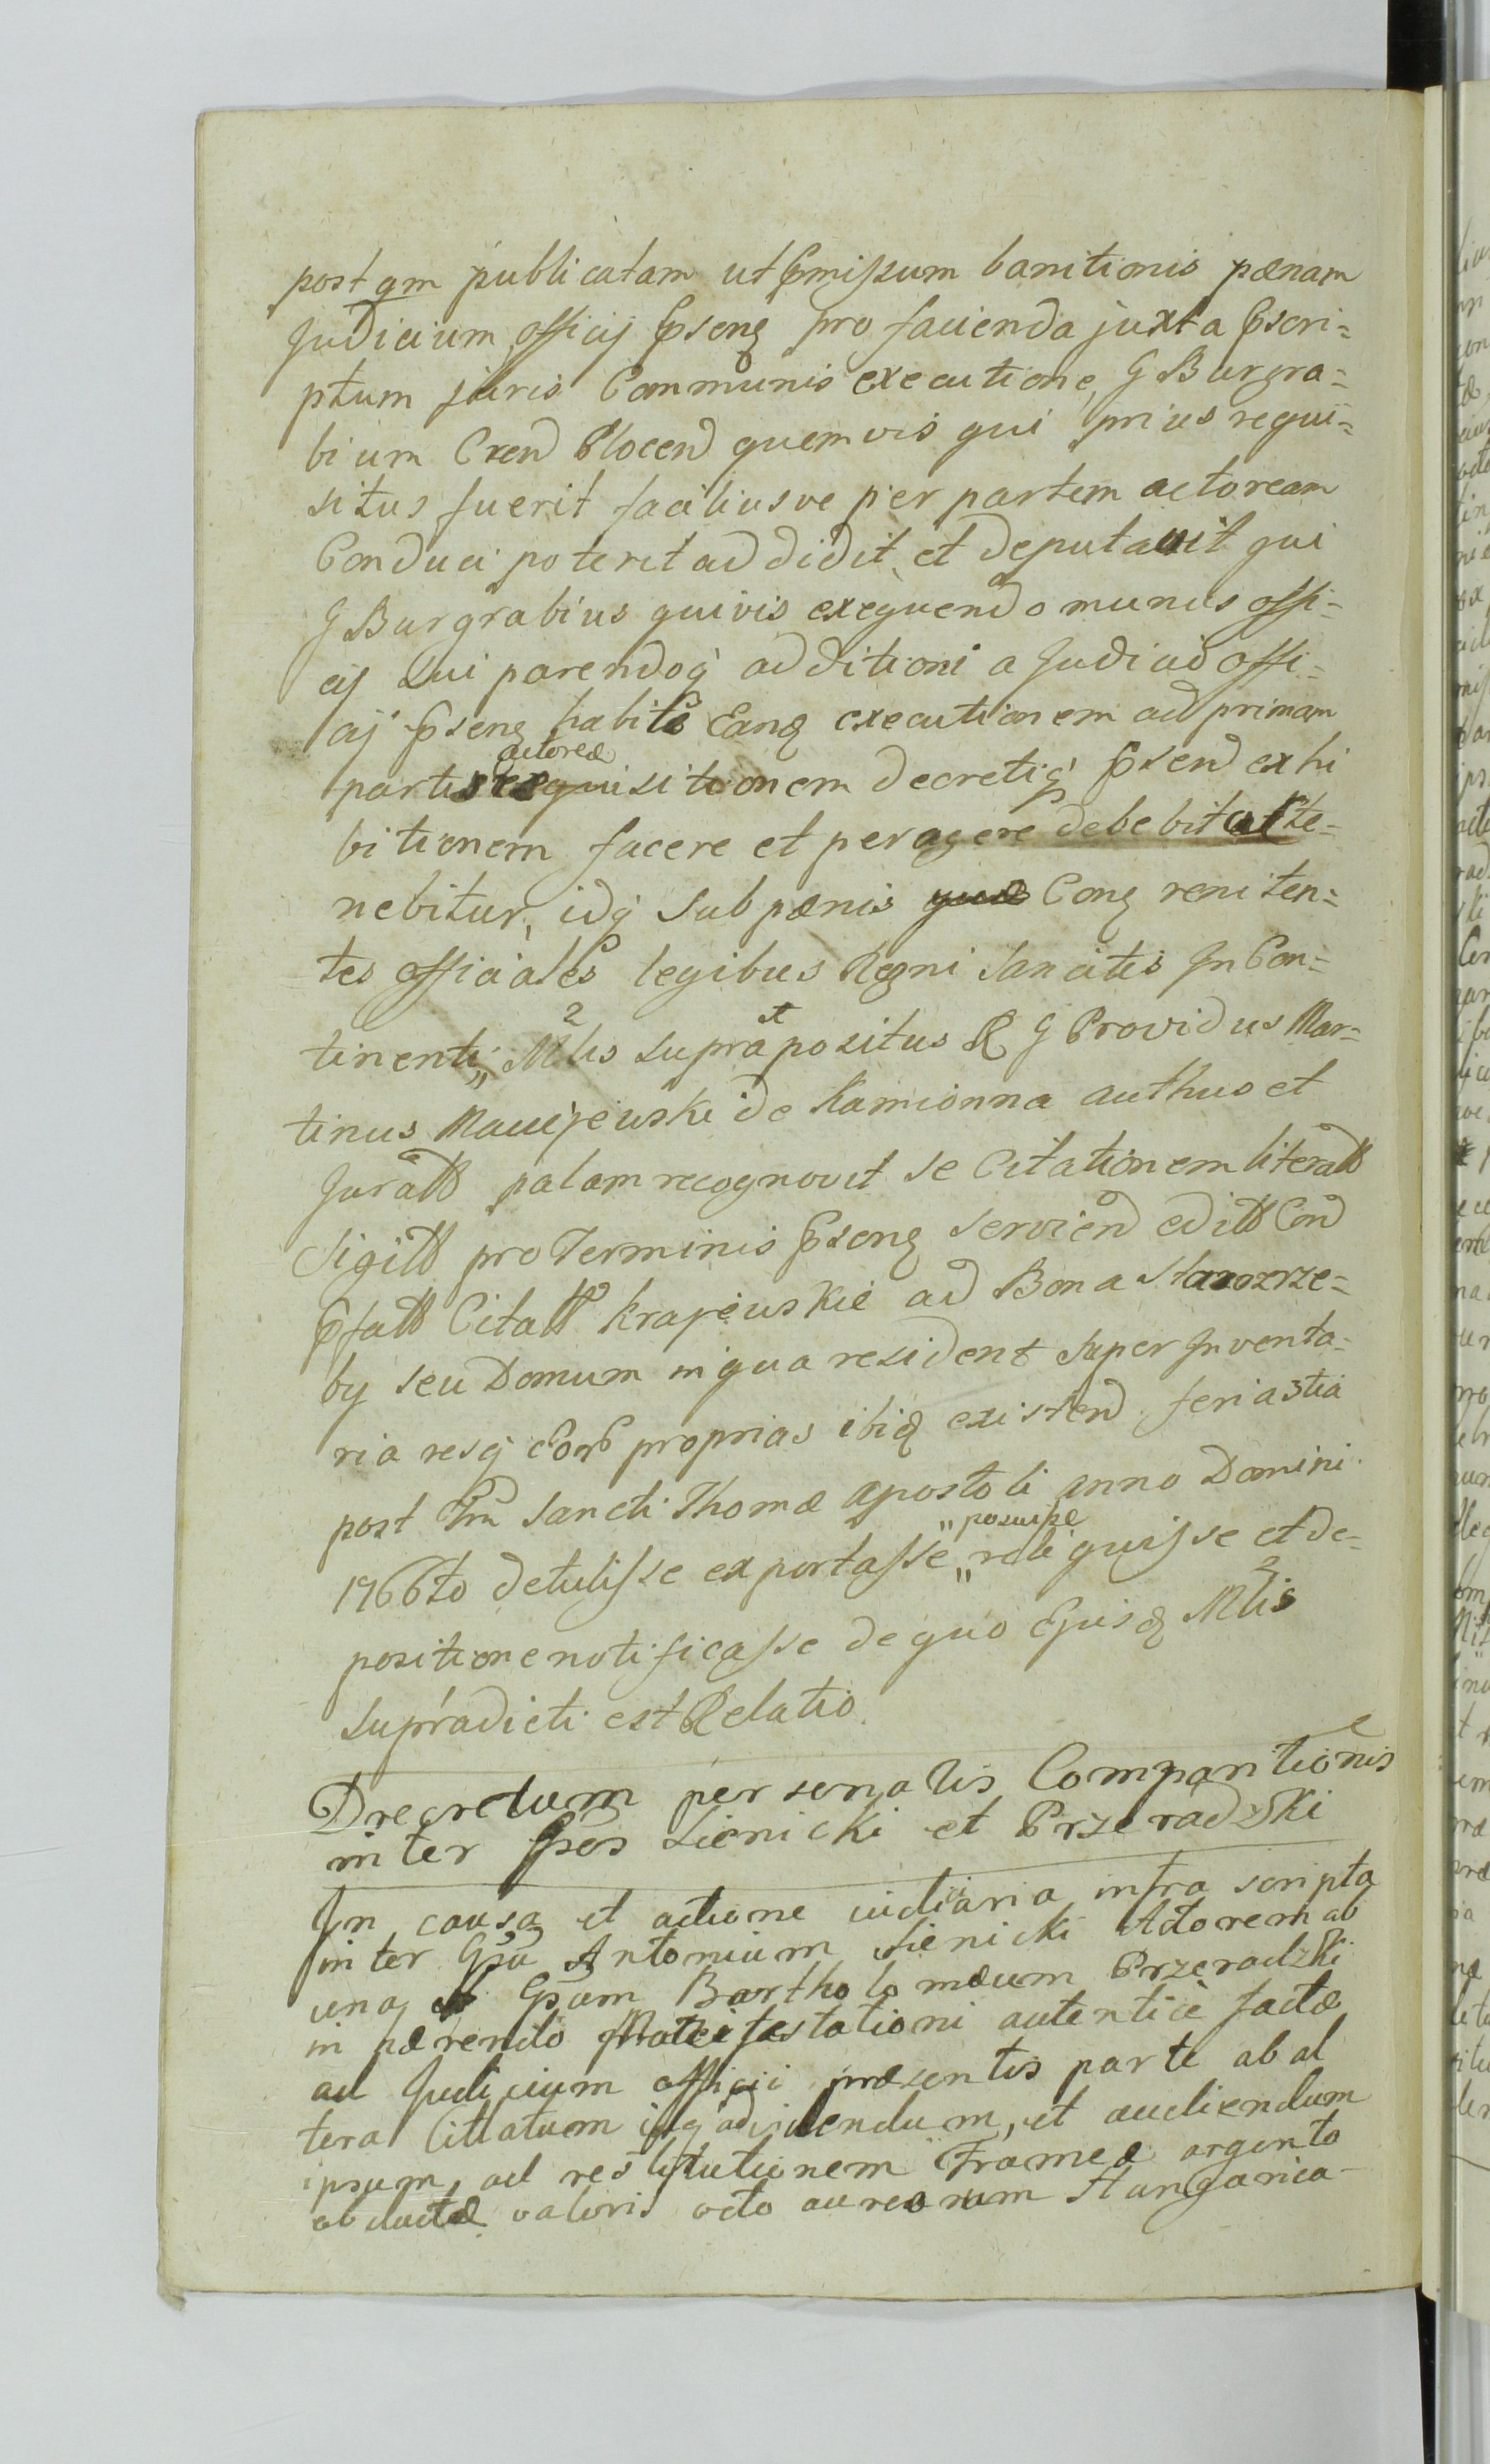 post qm publicatam ut pmissum banitionis pænam
Judicium officij psens pro facienda juxta pscri=
ptum juris Communis executione, G Burgra=
bium Cren Plocen quemvis qui prius requi=
situs fuerit faciliusve per partem actoream
Conduci poterit addidit, et deputavit qui
G Burgrabius quivis exequendo munus offi=
cij sui parendoq additioni a Judicio offi=
cij psens habite Eandq executionem ad primam
actoreæ
partis requisitionem decretiq psen exhi
bitionem facere et peragere debebit aste=
nebitur, idq sub pænis Conq reniten=
tes officiales legibus Regni sancitis In Con=
tinenti, Mlis suprapositus R G Providus Mar=
tinus Maciejewski de Kamionna authus et
Jurats palam recognovit se Citationem literats
Sigills pro Terminis psens servien edits Con
pfats Citats Krajewskie ad Bona Starozrze=
by seu Domum in qua resident super Inventa=
ria resq Eorb proprias ibiq existen feria 3tia
post Fm Sancti Thomæ apostoli anno Domini
„ posuisse
1766to detulisse exportasse „ reliquisse et de=
positione notificasse de quo Ejusq Mlis
supradicti est Relatio.
Drecretum personalis Comparitionis
inter Gsos Lienicki et Przeradzki
In causa et actione iudiciaria infra scripta
inter Gsu Antonium Sienicki Actorem ab
una et Gsum Bartholomæum Przeradzki
in hærendo Manifestationi autenticè factæ
ad Judicium officii præsentis parte ab al
tera Cittatum idq ad videndum, et audiendum
ipsum, ad restitutionem Frameæ argento
obductæ valoris octo aureorum Hungarica-